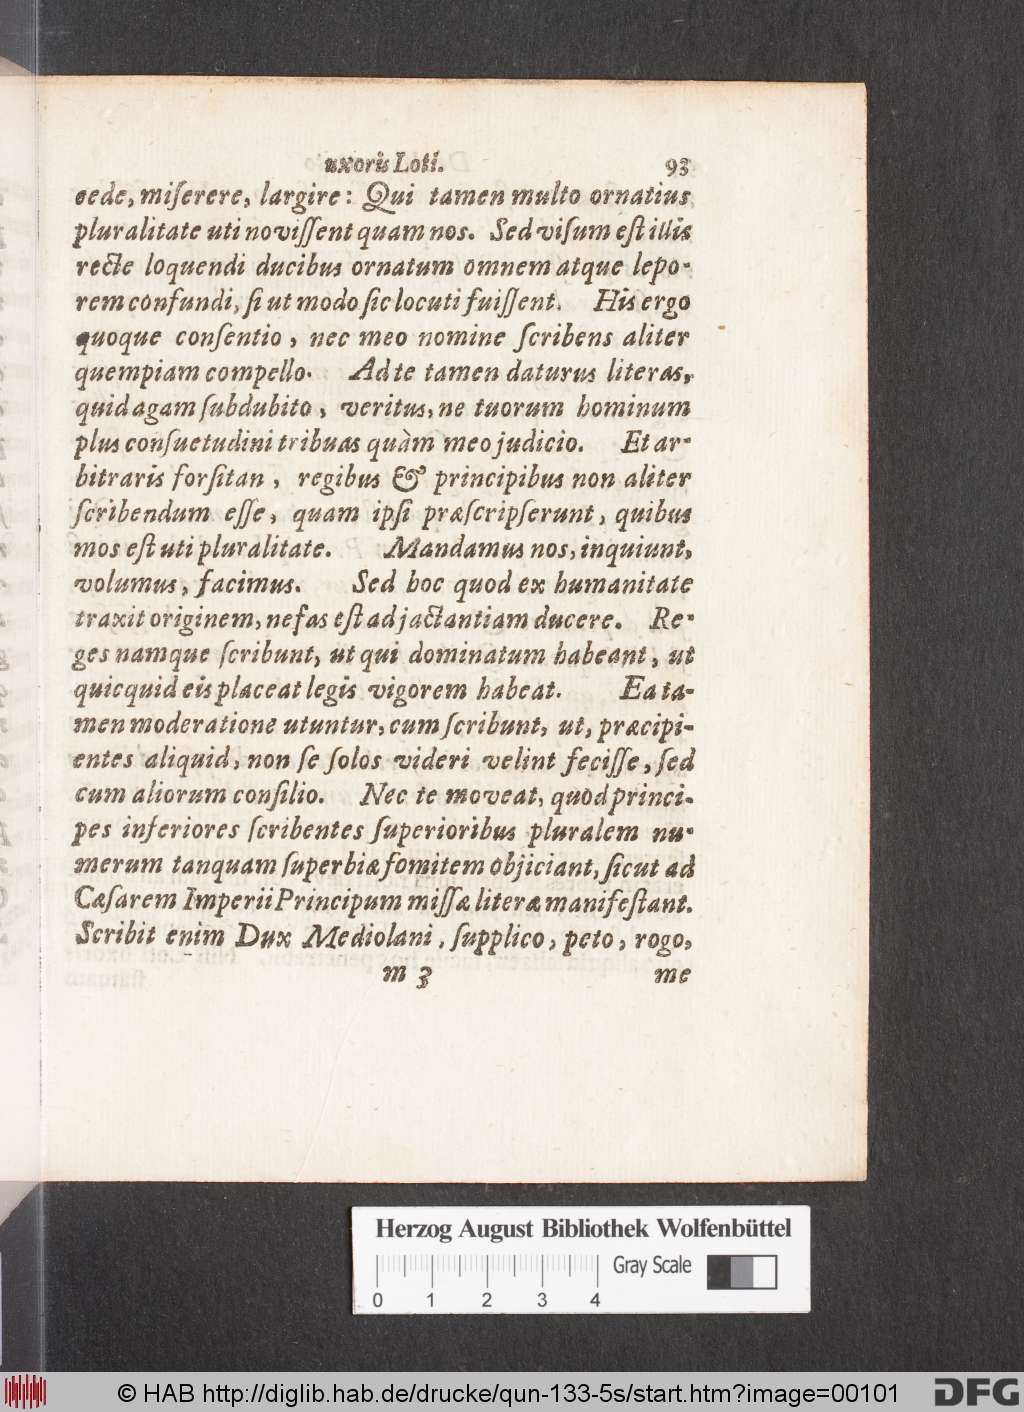 uxoris Loti. 93
cede, miſerere, largire: Qui tamen multo ornatius
pluralitate uti noviſſent quam nos. Sed viſum eſt illis
recte loquendi ducibus ornatum omnem atque lepo-
rem confundi, ſi ut modo ſic locuti fuiſſent. His ergo
quoque conſentio, nec meo nomine ſcribens aliter
quempiam compello. Ad te tamen daturus literas,
quid agam ſubdubito, veritus, ne tuorum hominum
plus conſuetudini tribuas quàm meo judicio. Et ar-
bitraris forſitan, regibus & principibus non aliter
ſcribendum eſſe, quam ipſi præſcripſerunt, quibus
mos eſt uti pluralitate. Mandamus nos, inquiunt,
volumus, facimus. Sed hoc quod ex humanitate
traxit originem, nefas eſt ad jactantiam ducere. Re-
ges namque ſcribunt, ut qui dominatum habeant, ut
quicquid eis placeat legis vigorem habeat. Ea ta-
men moderatione utuntur, cum ſcribunt, ut, præcipi-
entes aliquid, non ſe ſolos videri velint feciſſe, ſed
cum aliorum conſilio. Nec te moveat, quòd princi-
pes inferiores ſcribentes ſuperioribus pluralem nu-
merum tanquam ſuperbiæ fomitem objiciant, ſicut ad
Cæſarem Imperii Principum miſſæ literæ manifeſtant.
Scribit enim Dux Mediolani, ſupplico, peto, rogo,
m 3 me
Herzog August Bibliothek Wolfenbüttel
Gray Scale
0 1 2 3 4
© HAB http://diglib.hab.de/drucke/qun-133-5s/start.htm?image=00101
DFG